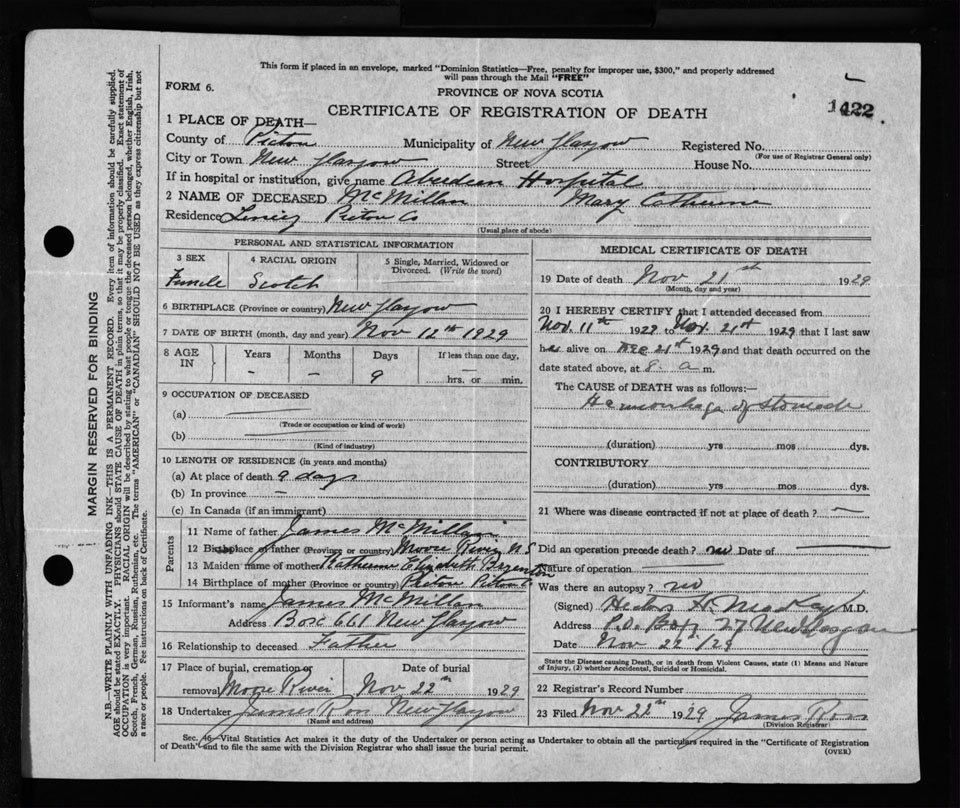 This form if placed in an envelope, marked "Dominion Statistics—Free, penalty for improper use, $300," and properly addressed
will pass through the Mail "FREE"
FORM 6.
PROVINCE OF NOVA SCOTIA
1422
CERTIFICATE OF REGISTRATION OF DEATH
1 PLACE OF DEATH—
County of Pictou Municipality of New Glasgow Registered No.
(For use of Registrar General only)
City or Town New Glasgow Street House No.
If in hospital or institution, give name Aberdeen Hospital
2 NAME OF DECEASED McMillan Mary Catherine
Residence Pictou Co
(Usual place of abode)
PERSONAL AND STATISTICAL INFORMATION
3 SEX 4 RACIAL ORIGIN 5 Single, Married, Widowed or
Divorced. (Write the word)
Female Scotch
6 BIRTHPLACE (Province or country) New Glasgow
7 DATE OF BIRTH (month, day and year) Nov 12th 1929
8 AGE IN Years Months Days If less than one day,
– – 9 hrs. or min.
9 OCCUPATION OF DECEASED
(a)
(Trade or occupation or kind of work)
(b)
(Kind of industry)
10 LENGTH OF RESIDENCE (in years and months)
(a) At place of death 9 days
(b) In province –
(c) In Canada (if an immigrant)
Parents
11 Name of father James McMillan
12 Birthplace of father (Province or country) Moore River N S
13 Maiden name of mother Katherine Elizabeth Brenton
14 Birthplace of mother (Province or country) Pictou Pictou Co
15 Informant's name James McMillan
Address Box 661 New Glasgow
16 Relationship to deceased Father
17 Place of burial, cremation or Date of burial
removal Moore River Nov 22nd 1929
18 Undertaker James Ross New Glasgow
(Name and address)
MEDICAL CERTIFICATE OF DEATH
19 Date of death Nov 21st 1929
(Month, day and year)
20 I HEREBY CERTIFY that I attended deceased from
Nov. 11th 1929 to Nov. 21st 1929 that I last saw
her alive on Dec 21st 1929 and that death occurred on the
date stated above, at 8. a m.
The CAUSE of DEATH was as follows:—
Hemorrhage of stomach
(duration) yrs mos dys.
CONTRIBUTORY
(duration) yrs. mos. dys.
21 Where was disease contracted if not at place of death? –
Did an operation precede death? no Date of
Nature of operation
Was there an autopsy? no
(Signed) Hector H. MacKay M.D.
Address P.O. Box 77 New Glasgow
Date Nov 22nd/29
State the Disease causing Death, or in death from Violent Causes, state (1) Means and Nature
of Injury, (2) whether Accidental, Suicidal or Homicidal.
22 Registrar's Record Number
23 Filed Nov 22nd 1929 James Ross
(Division Registrar)
Sec. 46—Vital Statistics Act makes it the duty of the Undertaker or person acting as Undertaker to obtain all the particulars required in the "Certificate of Registration
of Death" and to file the same with the Division Registrar who shall issue the burial permit.
(OVER)
MARGIN RESERVED FOR BINDING
N.B.—WRITE PLAINLY WITH UNFADING INK—THIS IS A PERMANENT RECORD. Every item of information should be carefully supplied.
AGE should be stated EXACTLY. PHYSICIANS should STATE CAUSE OF DEATH in plain terms, so that it may be properly classified. Exact statement of
OCCUPATION is very important. RACIAL ORIGIN will be described by stating to what people or tongue the deceased person belonged, whether English, Irish,
Scotch, French, German, Russian, Ruthenian, etc. The terms "AMERICAN" or "CANADIAN" SHOULD NOT BE USED as they express citizenship but not
a race or people. See instructions on back of Certificate.